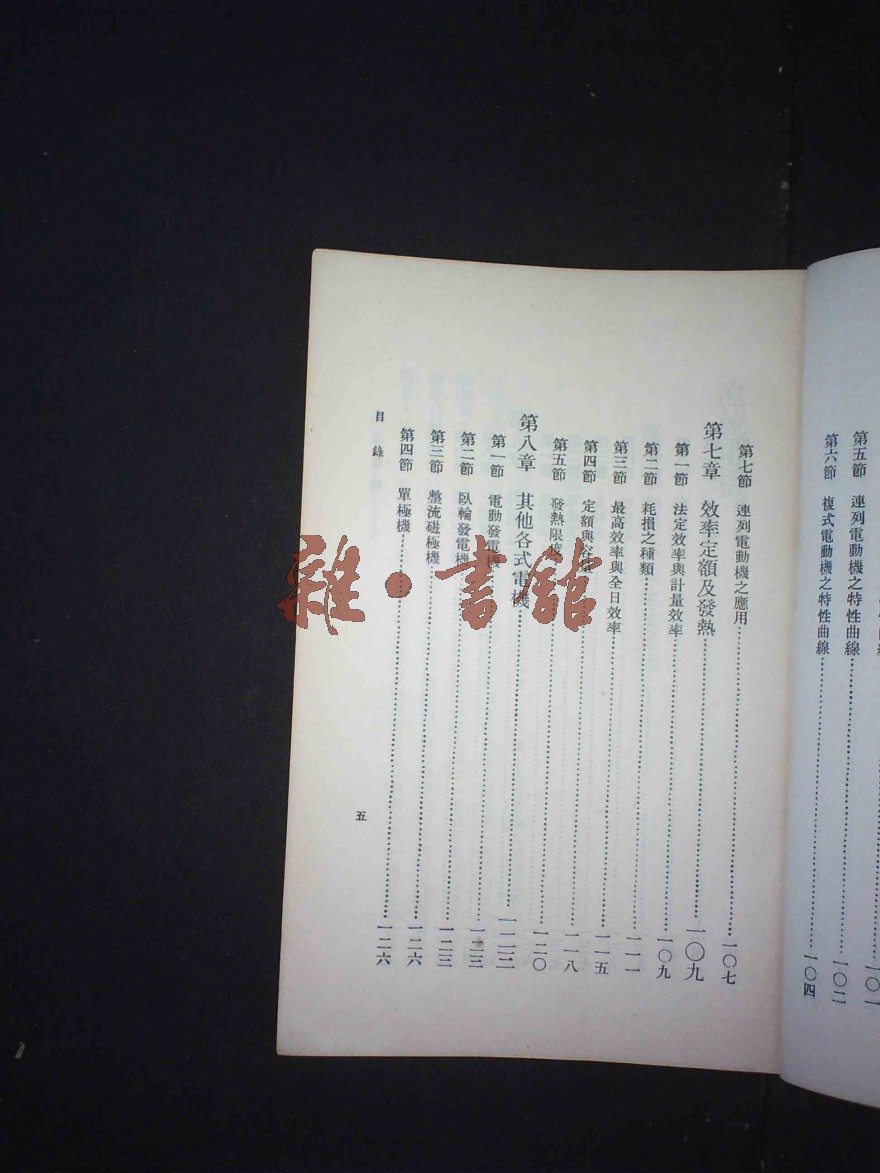 第五節 連列電動機之特性曲線……一〇二
第六節 複式電動機之特性曲線……一〇四
第七節 連列電動機之應用……一〇七
第七章 效率定額及發熱……一〇九
第一節 法定效率與計量效率……一〇九
第二節 耗損之種類……一一一
第三節 最高效率與全日效率……一一五
第四節 定額與容……一一八
第五節 發熱限……一二〇
第八章 其他各式電機……一二三
第一節 電動發電機……一二三
第二節 臥輪發電機……一二三
第三節 整流磁極機……一二六
第四節 單極機……一二六
目錄
五
雜·書館